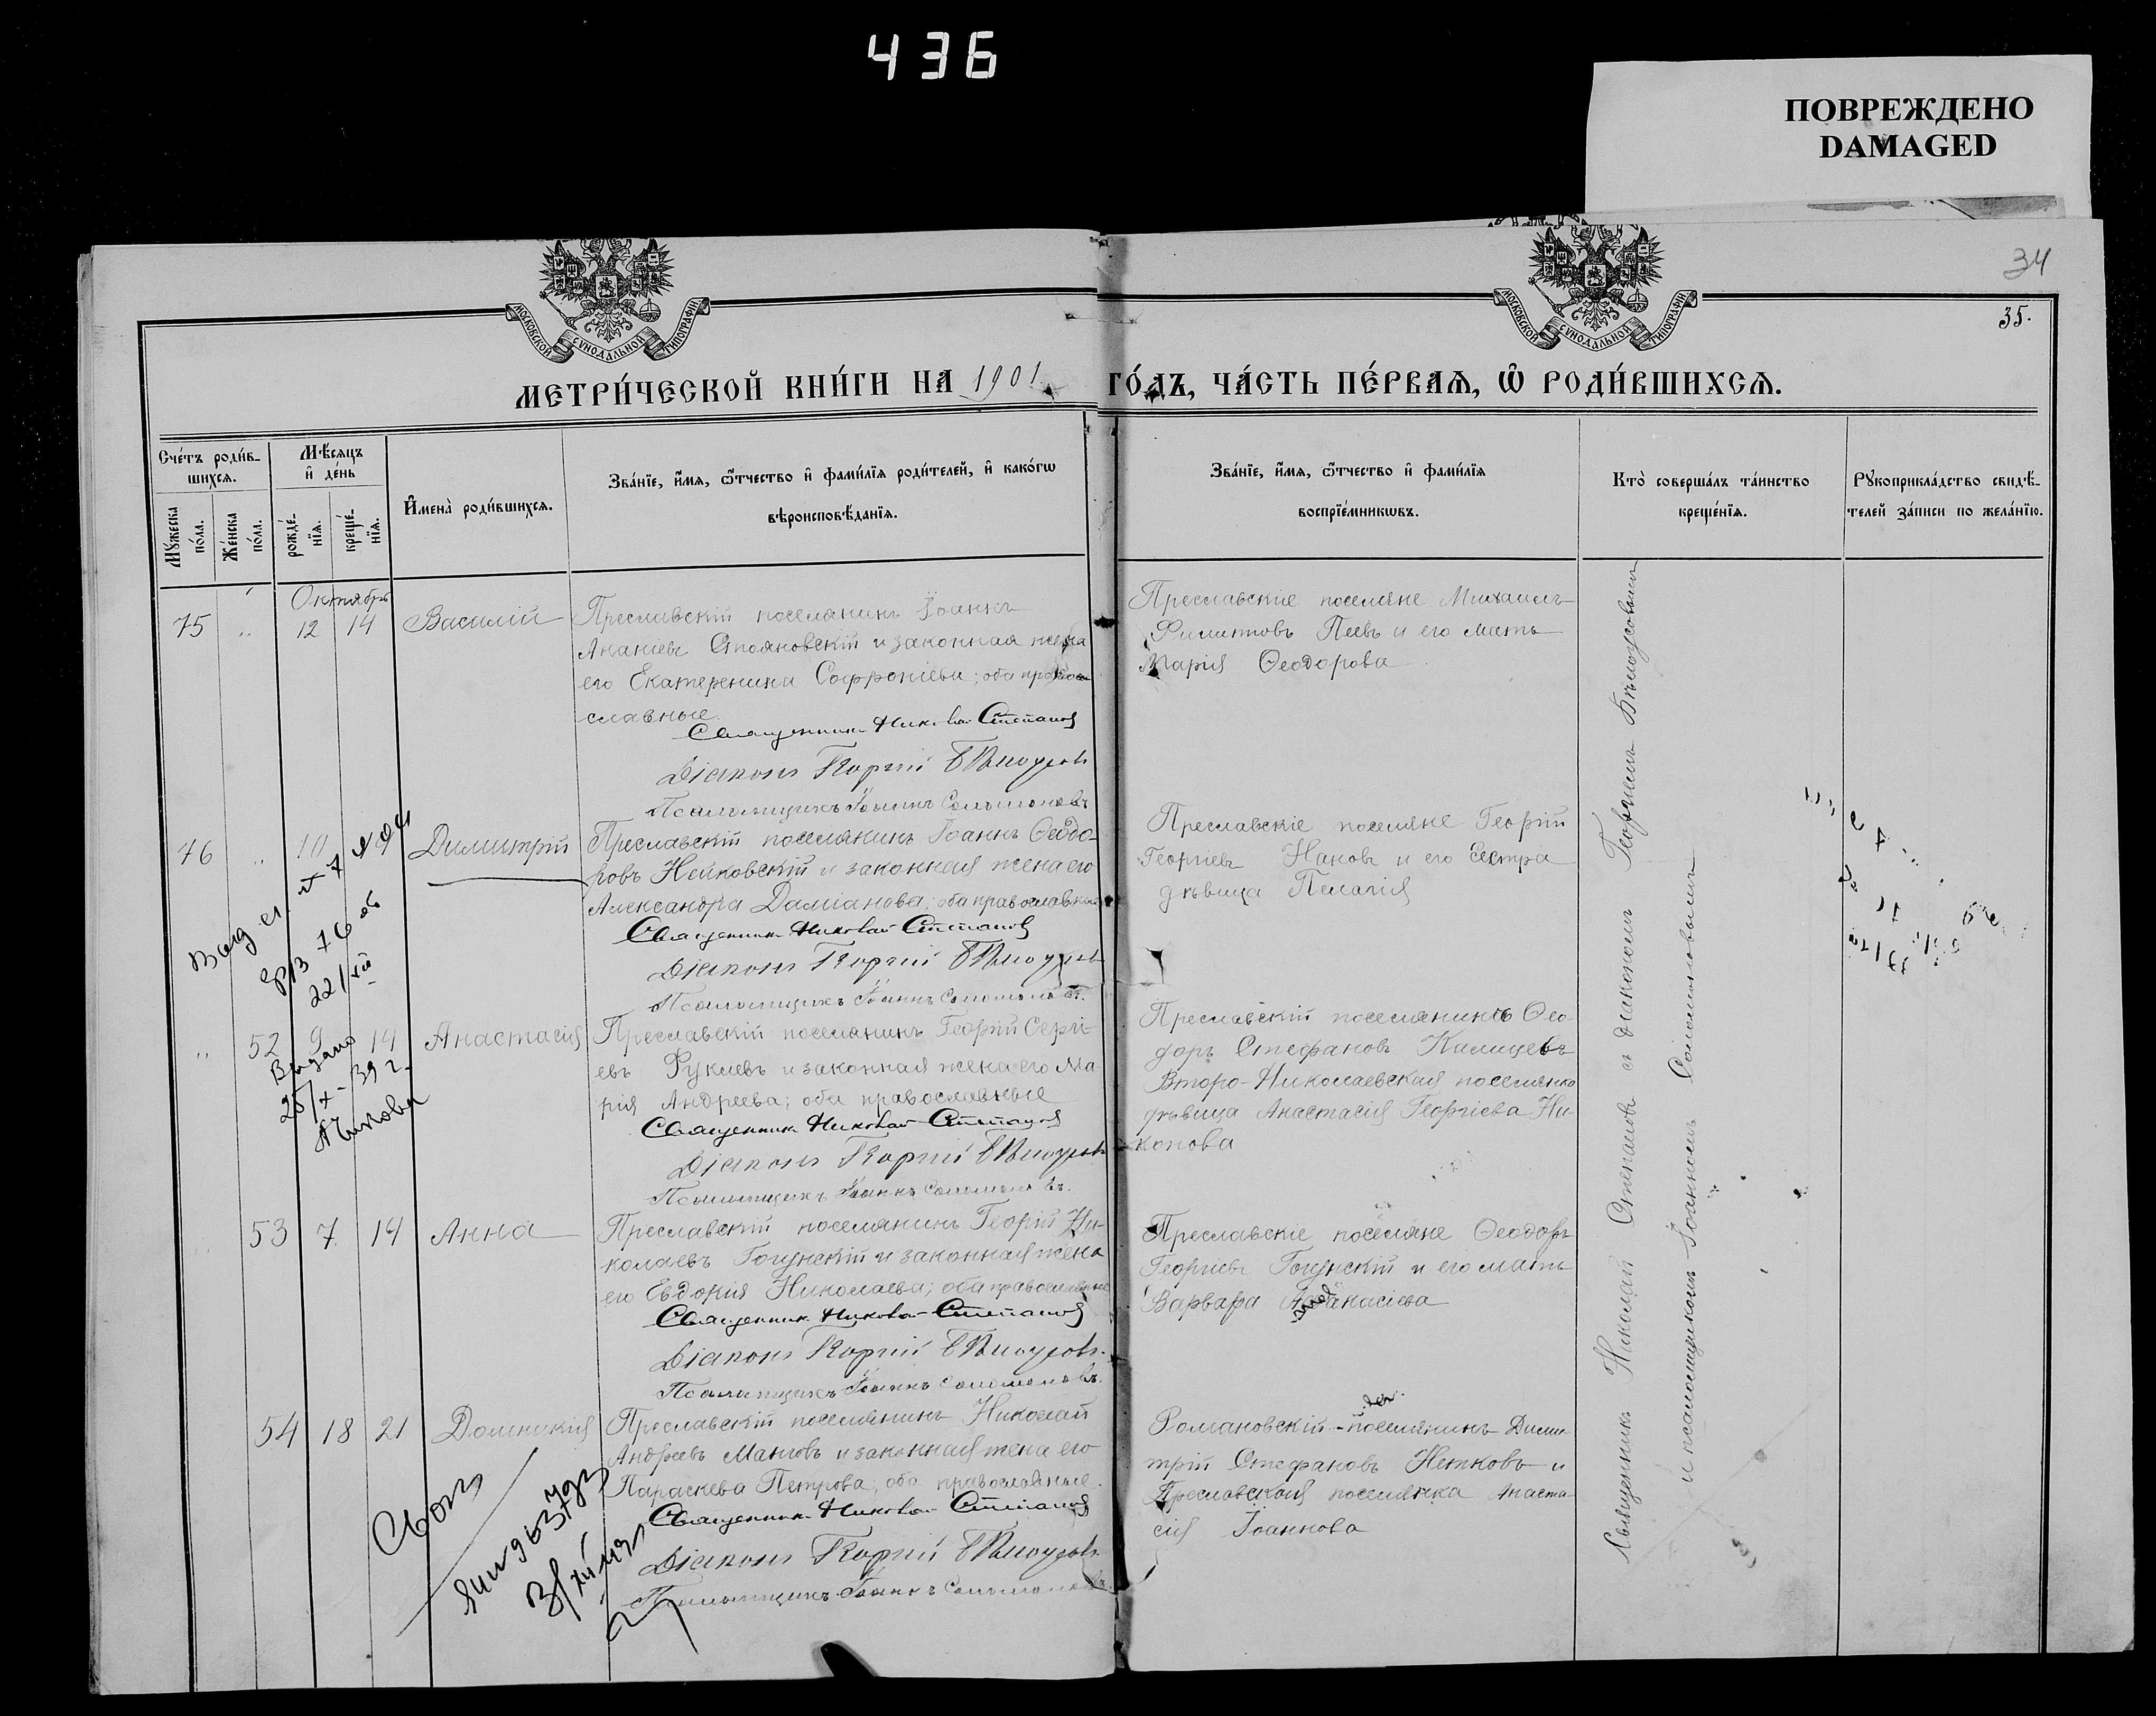 436
ПОВРЕЖДЕНО
DAMAGED
34
35.
МОСКОВСКОЙ СѴНОДАЛЬНОЙ ТИПОГРАФІИ
МОСКОВСКОЙ СѴНОДАЛЬНОЙ ТИПОГРАФІИ
МЕТРИ́ЧЕСКОЙ КНИ́ГИ НА 1901 ГО́ДЪ, ЧА́СТЬ ПЕ́РВАѦ, Ѽ РОДИ́ВШИХСѦ.
Сче́тъ роди́в-
шихсѧ.
Мѣ́сѧцъ
и҆ де́нь
Мꙋ́жеска
по́ла.
Же́нска
по́ла.
рожде́-
нїѧ.
креще́-
нїѧ.
И҆мена̀ роди́вшихсѧ.
Зва́нїе, и҆́мѧ, ѻ҆́тчество и҆ фами́лїѧ роди́телей, и҆ како́гѡ
вѣроисповѣ́данїѧ.
Зва́нїе, и҆́мѧ, ѻ҆́тчество и҆ фами́лїѧ
воспрїе́мникѡвъ.
Кто̀ соверша́лъ та́инство
креще́нїѧ.
Рꙋкоприкла́дство свидѣ́-
телей за́писи по жела́нїю.
Октябрь
75 " 12 14 Василій
Преславскій поселянинъ Іоаннъ
Ананіевъ Стояновскій и законная жена
его Екатерина Софроніева; оба право-
славные.
Священникъ Николай Степановъ
Діаконъ Георгій Бѣлоусовъ
Псаломщикъ Іоаннъ Соломоновъ
Преславскіе поселяне Михаилъ
Филипповъ Пеевъ и его мать
Марія Ѳеодорова
76 " 10 14 Димитрій
Преславскій поселянинъ Іоаннъ Ѳеодо-
ровъ Нейковскій и законная жена его
Александра Даміанова; оба православные
Священникъ Николай Степановъ
Діаконъ Георгій Бѣлоусовъ
Псаломщикъ Іоаннъ Соломоновъ.
Преславскіе поселяне Георгій
Георгіевъ Нановъ и его сестра
дѣвица Пелагія
76
22/XII
" 52 9 14 Анастасія
Преславскій поселянинъ Георгій Сергі-
евъ Рукиевъ и законная жена его Ма-
рія Андреева; оба православные
Священникъ Николай Степановъ
Діаконъ Георгій Бѣлоусовъ
Псаломщикъ Іоаннъ Соломоновъ.
Преславскій поселянинъ Ѳео-
доръ Стефановъ Калицевъ
Второ-Николаевская поселянка
дѣвица Анастасія Георгіева Ни-
конова
Выдано
25/X-39 г.
" 53 7 14 Анна
Преславскій поселянинъ Георгій Ни-
колаевъ Гогунскій и законная жена
его Евдокія Николаева; оба православные
Священникъ Николай Степановъ
Діаконъ Георгій Бѣлоусовъ.
Псаломщикъ Іоаннъ Соломоновъ.
Преславскіе поселяне Ѳеодоръ
Георгіевъ Гогунскій и его мать
Варвара Аѳанасіева
54 18 21 Домникія
Преславскій поселянинъ Николай
Андреевъ Манговъ и законная жена его
Параскева Петрова; оба православные.
Священникъ Николай Степановъ
Діаконъ Георгій Бѣлоусовъ.
Псаломщикъ Іоаннъ Соломоновъ.
Романовскій поселянинъ Дими-
трій Стефановъ Нетковъ и
Преславская поселянка Анаста-
сія Іоаннова
Священникъ Николай Степановъ съ діакономъ Георгіемъ Бѣлоусовымъ
и псаломщикомъ Іоанномъ Соломоновымъ